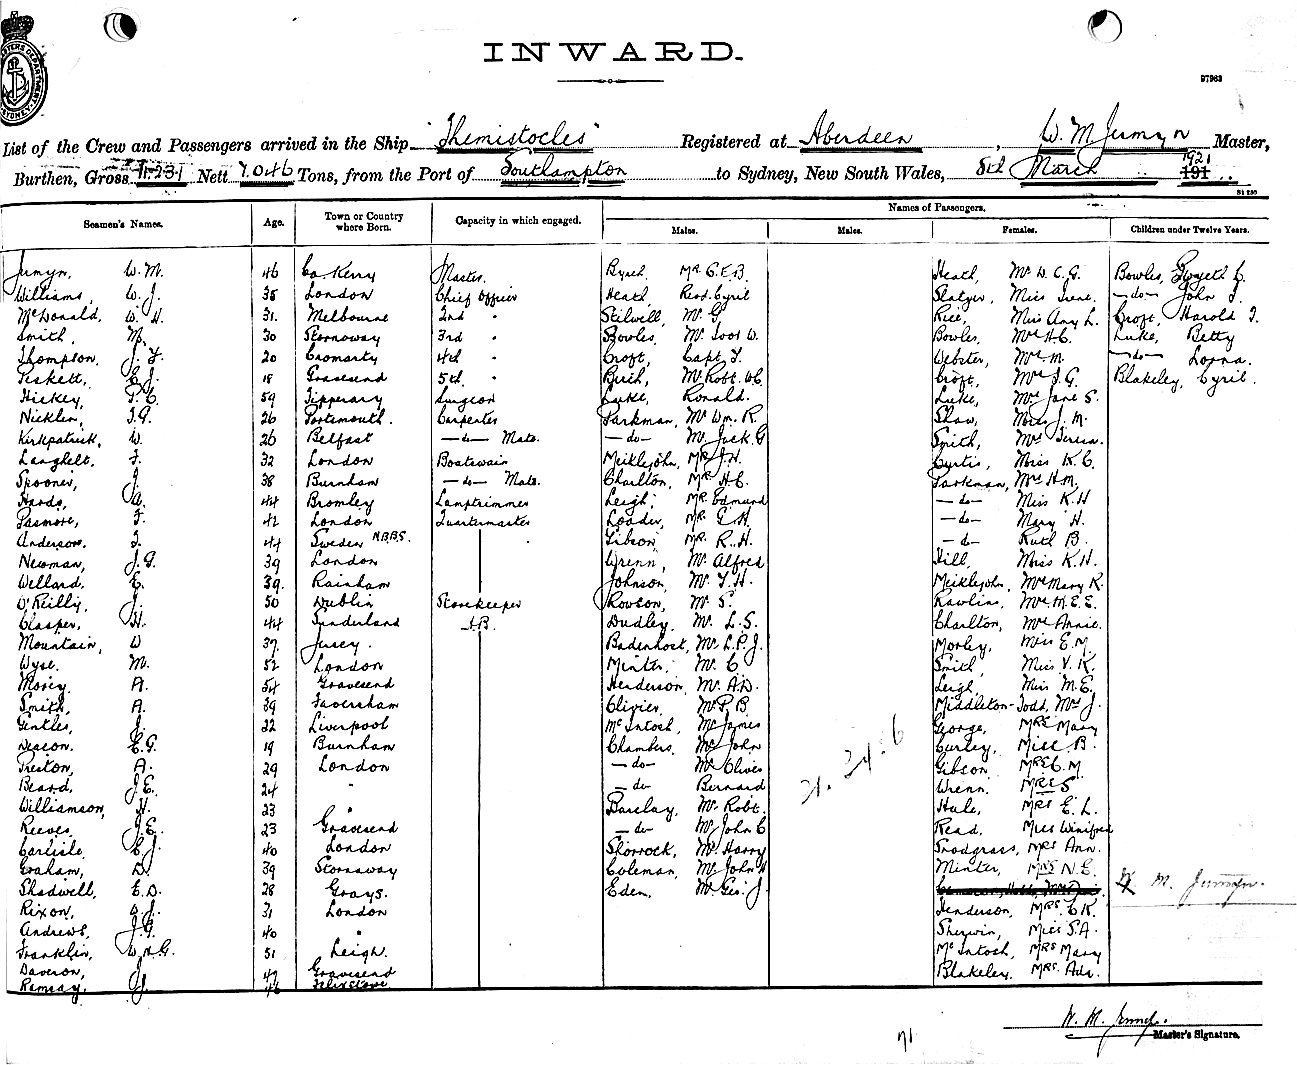 INWARD.
97963
List of the Crew and Passengers arrived in the Ship "Themistocles" Registered at Aberdeen, W. M Jermyn Master,
Burthen, Gross 11.231 Nett 7.046 Tons, from the Port of Southampton to Sydney, New South Wales, March 1921
Names of Passengers.
Seamen's Names. Age. Town or Country where Born. Capacity in which engaged. Males. Males. Females. Children under Twelve Years.
Jermyn, W. M. 46 Co. Kerry Master. Mr. C.E.B. Heath, Mrs W. C. G. Bowles, Gwyneth C.
Williams, W. J. 35 London Chief Officer Heath, Revd. Cyril Miss Irene. -do- John T.
McDonald, W. H. 31. Melbourne 2nd " Stilwell, Mr. G. Rice, Miss Amy L. Croft, Harold T.
Smith, M. 30 Stornoway 3rd " Bowles, Mr. W. Bowles, Mrs H.C. Luke, Betty
Thompson, J. F. 20 Cromarty 4th " Croft, Capt. T. Webster, Mrs M. -do- Lorna.
Peskett, C. J. 18 Gravesend 5th. " Birch, Mr. Robt. Croft, Mrs J. G. Blakeley, Cyril.
Hickey, P. C. 59 Tipperary Surgeon Luke, Ronald. Luke, Mrs Jane S.
Nicklin, J. G. 26 Portsmouth. Carpenter Parkman, Mr Wm. R. Shaw, Miss J. M.
Kirkpatrick, W. 26 Belfast -do- Mate. -do- Mr. Jack. G Smith, Mrs Teresa.
Langhelt, F. 32 London Boatswain Meiklejohn, Mr J.H. Curtis, Miss K. C.
Spooner, J. 38 Burnham -do- Mate. Charlton, Mr H.C. Parkman, Mrs H.M.
Hards, A. 44 Bromley Lamptrimmer Leigh, Mr. Edmund -do- Miss K. H
Pasmore, F. 42 London Quartermaster Loader, Mr. E. H. -do- Mary H.
Anderson, J. 44 Sweden N.B.B.S. Gibson, Mr. R. H. -do- Ruth B.
Newman, J. G. 39 London Wrenn, Mr. Alfred Hill, Miss K. H.
Wellard, E. 39. Rainham Johnson, Mr. T. H. Meiklejohn, Mrs Mary R.
O'Reilly, J. 50 Dublin Storekeeper Rowson, Mr. S. Rawlins, Mrs M. E. E.
Clasper, H. 44 Sunderland A.B. Dudley, Mr. L. S. Charlton, Mrs Annie.
Mountain, W 37. Jersey. Badenhost, Mr. L. P. J. Morley, Miss E. M.
Wyse, M. 52 London Minter, Mr. C Smith, Miss V. K.
Morey, A. 54 Gravesend Henderson, Mr. A.D. Leigh, Miss M. E.
Smith, A. 39 Faversham Olivier, Mr P. B Middleton-Todd, Mrs J.
Gentles, J. 22 Liverpool McIntosh, Mr James George, Mrs Mary
Deacon, E. G. 19 Burnham Chambers, Mr John Curley, Miss B.
Preston, A. 29 London -do- Mr Oliver Gibson, Mrs C. M.
Beard, J. E. 24 " -do- Bernard Wrenn, Mrs S
Williamson, H. 23 " Barclay, Mr Robt. Hale, Mrs E. L.
Reeves, J. E. 23 Gravesend -do- Mr John C Read, Miss Winifred
Carlisle, C. J. 40 London Shorrock, Mr. Harry Snodgrass, Mrs Ann.
Graham, D. 39 Stornoway Coleman, Mr John H Minter, Mrs N. E.
Shadwell, E. D. 28 Grays. Eden, Mr Geo. J. W. M. Jermyn.
Rixon, W. J. 31 London Henderson, Mrs. C K.
Andrews, J. G. 40 " Sherwin, Miss S. A.
Franklin, W. H. G. 51 Leigh. McIntosh, Mrs Mary
Daveron, 47 Gravesend Blakeley, Mrs. Ada.
Ramsay, J. 46 Felixstowe
W. M. Jermyn.
Master's Signature.
71